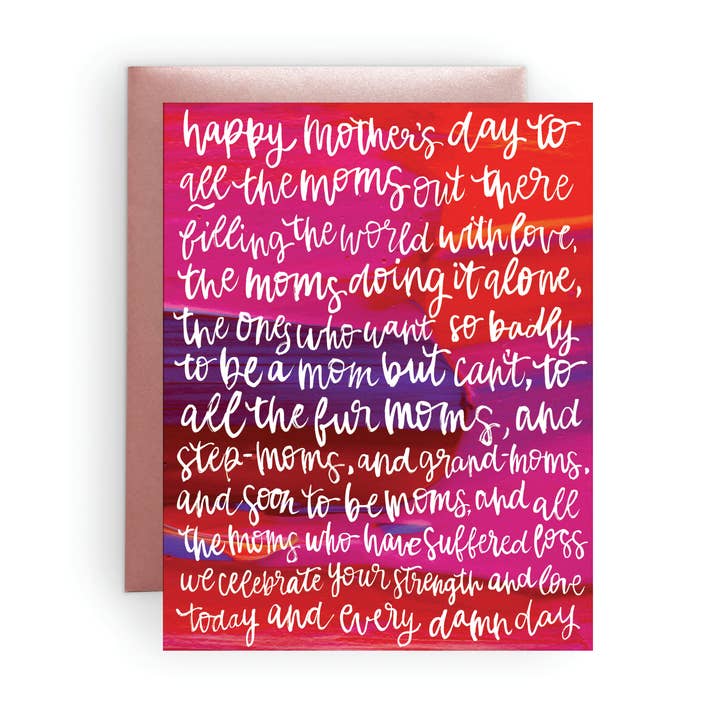 happy mother's day to
all the moms out there
filling the world with love,
the moms doing it alone,
the ones who want so badly
to be a mom but can't, to
all the fur moms, and
step-moms, and grand-moms,
and soon to be moms, and all
the moms who have suffered loss
we celebrate your strength and love
today and every damn day